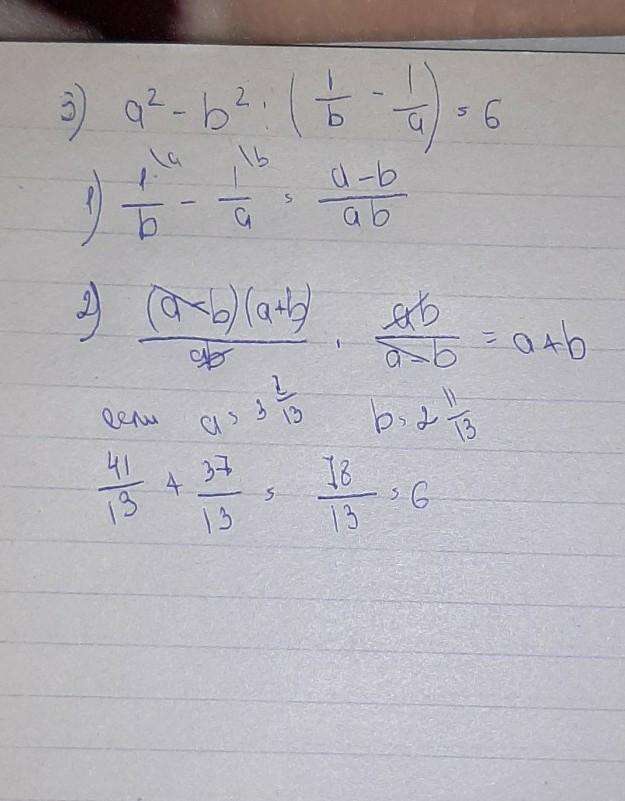 3) a² - b² : (1/b - 1/a) = 6
1) 1\a/b - 1\b/a = a-b/ab
2) (a-b)(a+b)/ab · ab/a-b = a+b
если a = 3 2/13 b = 2 11/13
41/13 + 37/13 = 78/13 = 6